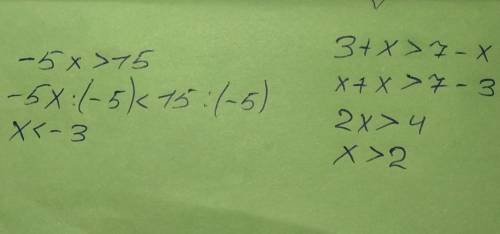 -5x>15
-5x:(-5)<15:(-5)
x<-3
3+x>7-x
x+x>7-3
2x>4
x>2